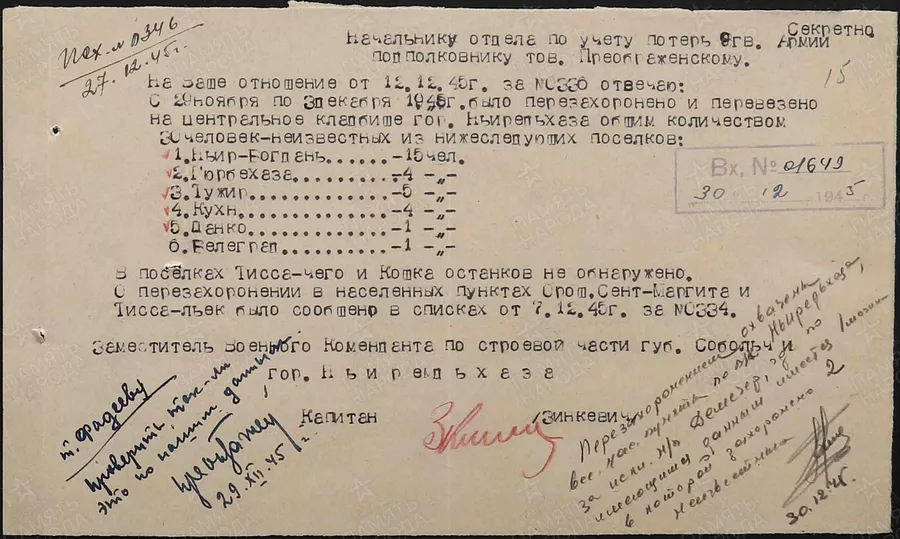 Секретно
Исх. № 0346
27.12.45г.
Начальнику отдела по учету потерь 9гв. Армии
подполковнику тов. Преображенскому.
15
На Ваше отношение от 12.12.45г. за №0336 отвечаю:
С 29ноября по 3декабря 1945г. было перезахоронено и перевезено
на центральное кладбище гор. Ньиредьхаза общим количеством
30человек-неизвестных из нижеследующих поселков:
1.Ньир-Богдань.......-15чел.
2.Гюрбехаза..........-4 -„-
3.Тужир..............-5 -„-
4.Кухн...............-4 -„-
5.Данко..............-1 -„-
6.Белеграп...........-1 -„-
Вх. № 01649
30 12 1945
В посёлках Тисса-чего и Кошка останков не обнаружено.
О перезахоронении в населенных пунктах Орош,Сент-Маргита и
Тисса-льек было сообщено в списках от 7.12.45г. за №0334.
Заместитель Военного Коменданта по строевой части губ. Собольч и
гор. Ньиредьхаза
Капитан /Зинкевич/
т. Фадееву
Проверить, так-ли
это по нашим данным
29.XII.45 г.
Перезахоронением охвачены
все нас. пункты по Ньиредьхаза,
за искл. н/п Деметер, где по
имеющимся данным имеется 1 могила
в которой захоронено 2
неизвестных
30.12.45.